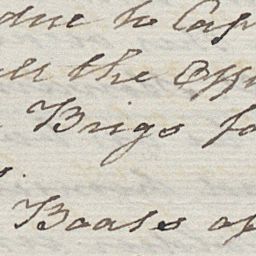 due to Cap
all the Offi
Brigs fo
Boats of